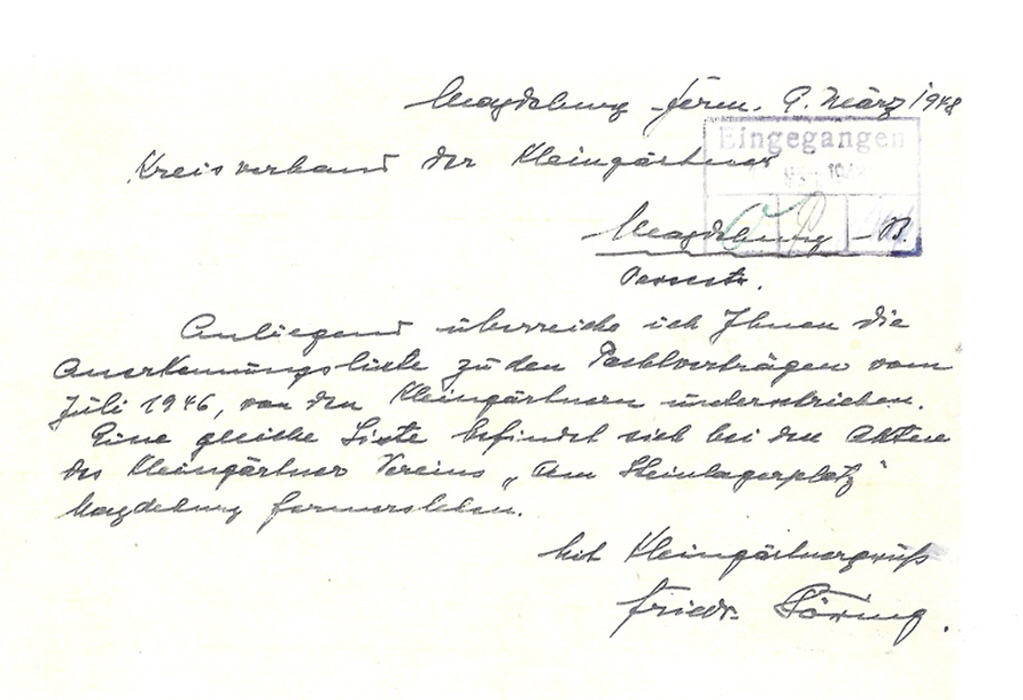 Magdeburg-Ferm. 9. März 1948
Kreisverband der Kleingärtner
Eingegangen
Magdeburg - B.
Anliegend überreiche ich Ihnen die
Anerkennungsliste zu den Pachtverträgen vom
Juli 1946, von den Kleingärtnern unterschrieben.
Eine gleiche Liste befindet sich bei den Akten
des Kleingärtner Vereins „Am Steinlagerplatz"
Magdeburg Fermersleben.
Mit Kleingärtnergruß
Friedr.